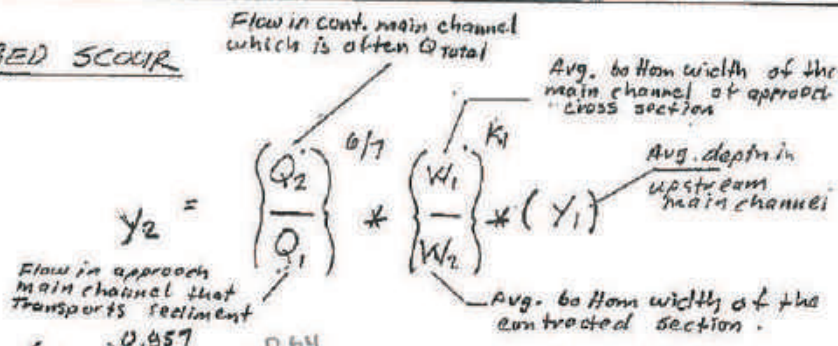 Flow in cont. main channel
which is often Q Total
BED SCOUR
Avg. bottom width of the
main channel at approach
cross section
Avg. depth in
upstream
main channel
y2 = (Q2 / Q1) 6/7 * (W1 / W2) K1 * (Y1)
Flow in approach
main channel that
Transports sediment
Avg. bottom width of the
contracted section.
0.857